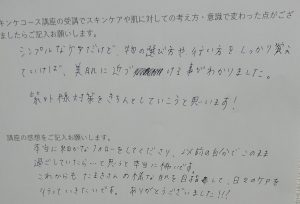 キンケコース講座の受講でスキンケアや肌に対しての考え方・意識で変わった点がござ
ましたらご記入お願いします。
シンプルなケアだけど、物の選び方や、行い方をしっかり覚え
ていけば、美肌に近づける事がわかりました。
紫外線対策をきちんとしていこうと思います!
講座の感想をご記入お願いします。
本当に細かなフォローをしてくださり、以前の自分でこのまま
過ごしていたら…と思うと本当に怖いです。
これからも たまきさんの様な肌を目指して、日々のケアを
行っていきたいです。ありがとうございました!!!